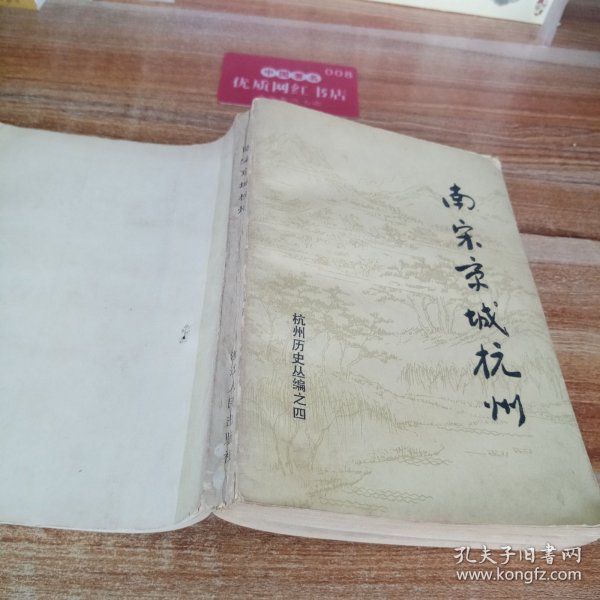 中国书名
008
优质网红书店
南宋京城杭州
杭州历史丛编之四
南宋京城杭州
浙江人民出版社
孔夫子旧书网
www.kongfz.com